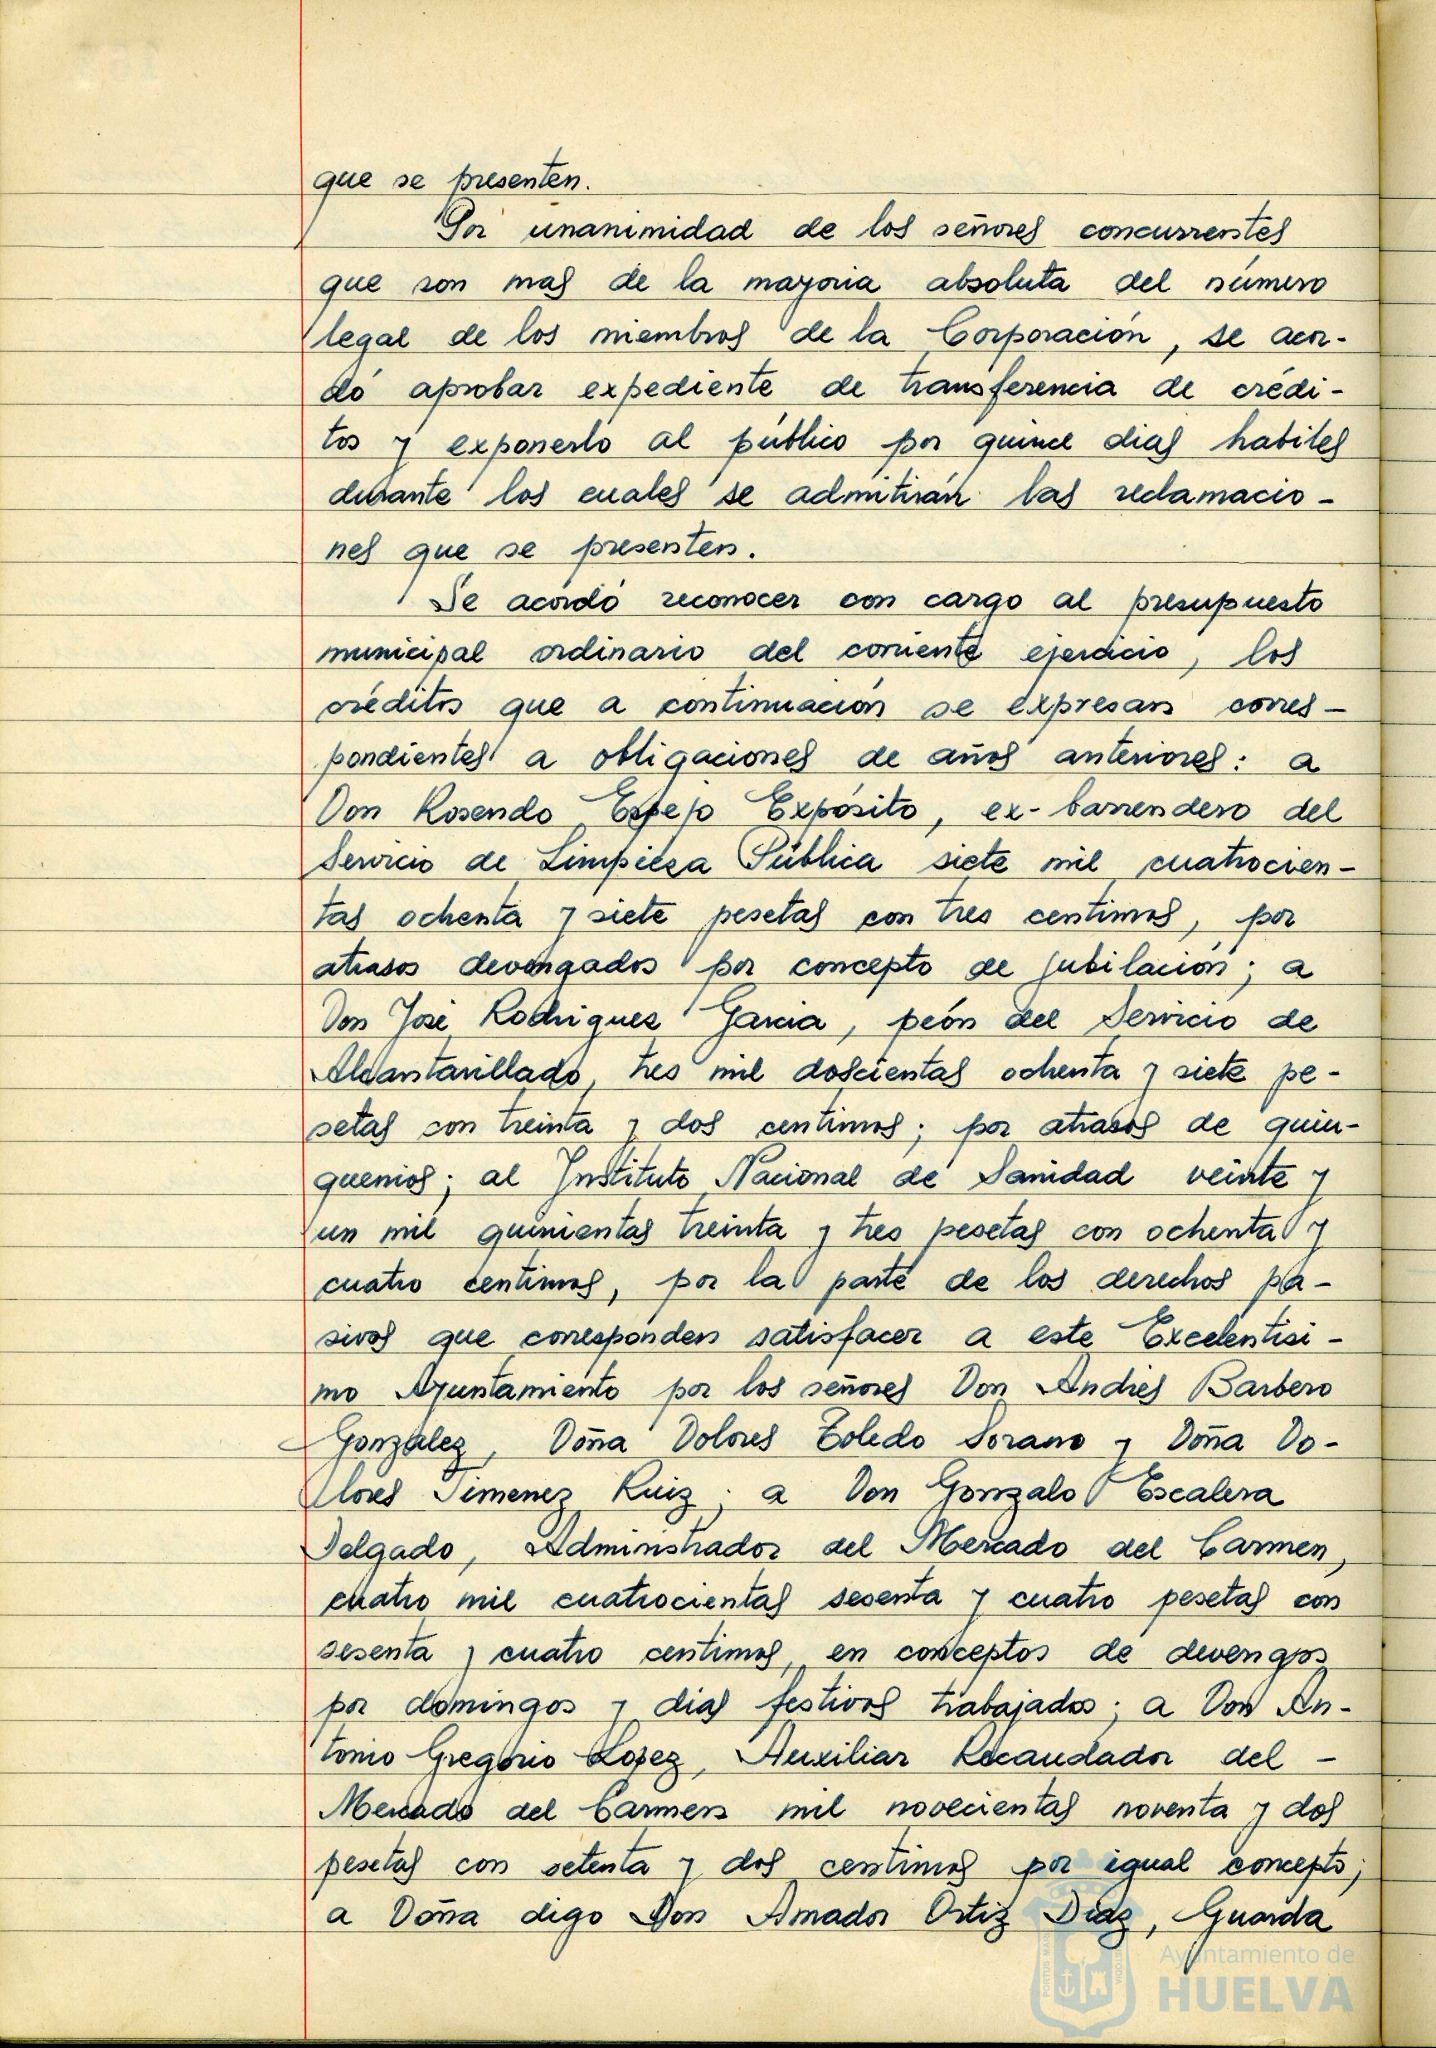 que se presenten.
Por unanimidad de los señores concurrentes
que son mas de la mayoria absoluta del número
legal de los miembros de la Corporación, se acor-
dó aprobar expediente de transferencia de crédi-
tos y exponerlo al público por quince dias habiles
durante los cuales se admitirán las reclamacio-
nes que se presenten.
Se acordó reconocer con cargo al presupuesto
municipal ordinario del corriente ejercicio, los
créditos que a continuación se expresan corres-
pondientes a obligaciones de años anteriores: a
Don Rosendo Espejo Expósito, ex-barrendero del
Servicio de Limpieza Pública siete mil cuatrocien-
tas ochenta y siete pesetas con tres centimos, por
atrasos devengados por concepto de jubilación; a
Don José Rodriguez Garcia, peón del Servicio de
Alcantarillado, tres mil doscientas ochenta y siete pe-
setas con treinta y dos centimos; por atrasos de quin-
quenios; al Instituto Nacional de Sanidad veinte y
un mil quinientas treinta y tres pesetas con ochenta y
cuatro centimos, por la parte de los derechos pa-
sivos que corresponden satisfacer a este Excelentisi-
mo Ayuntamiento por los señores Don Andrés Barbero
González, Doña Dolores Toledo Sorano y Doña Do-
lores Jimenez Ruiz; a Don Gonzalo Escalera
Delgado, Administrador del Mercado del Carmen,
cuatro mil cuatrocientas sesenta y cuatro pesetas con
sesenta y cuatro centimos, en conceptos de devengos
por domingos y dias festivos trabajados; a Don An-
tonio Gregorio Lopez, Auxiliar Recaudador del -
Mercado del Carmen mil novecientas noventa y dos
pesetas con setenta y dos centimos por igual concepto;
a Doña digo Don Amador Ortiz Diaz, Guarda
Ayuntamiento de
HUELVA